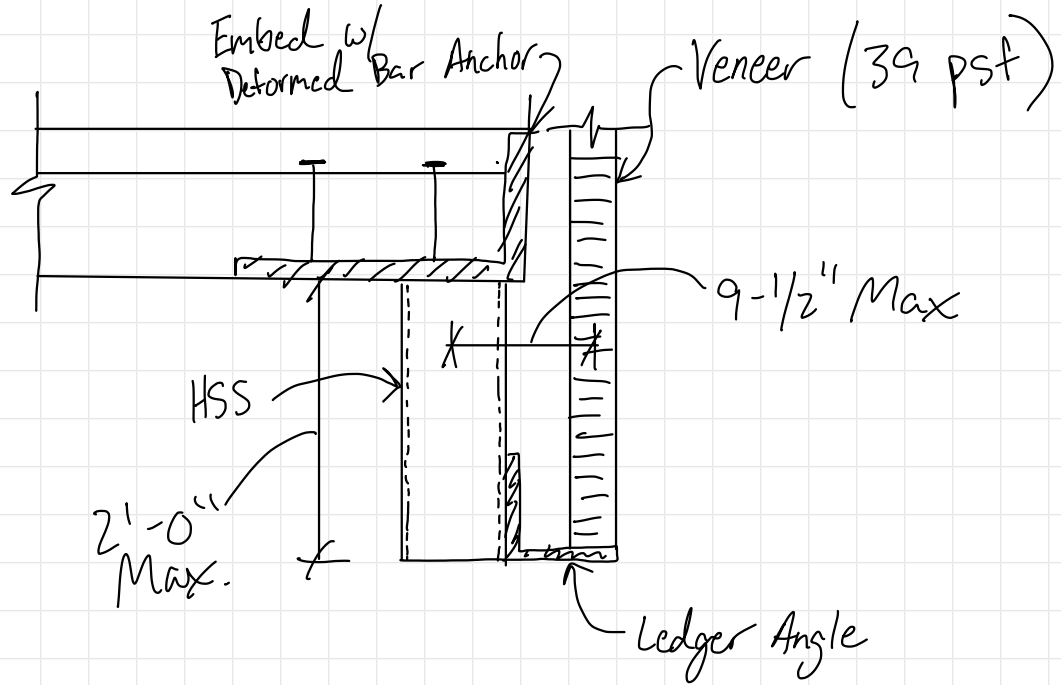 Embed w/
Deformed Bar Anchor
Veneer (39 psf)
9-1/2" Max
HSS
2'-0"
Max.
Ledger Angle